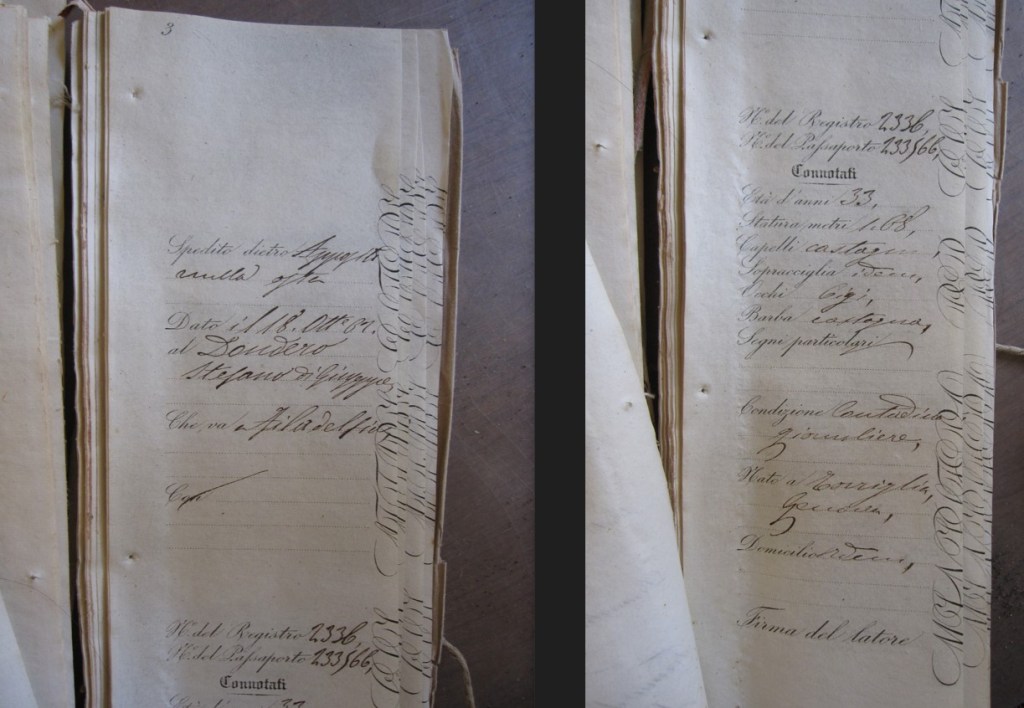 3
Spedito dietro
nulla osta
Dato il 18. Ott.e 67.
al Dondero
Stefano di Giuseppe
Che va a Filadelfia
Con
N.º del Registro 2336,
N.º del Passaporto 233566,
Connotati
Età d'anni 33,
N.º del Registro 2336,
N.º del Passaporto 233566,
Connotati
Età d'anni 33,
Statura metri 1.68,
Capelli castagni,
Sopracciglia idem,
Occhi bigi,
Barba castagna,
Segni particolari
Condizione Contadino
giornaliere,
Nato a Torriglia,
Genova,
Domicilio idem,
Firma del latore